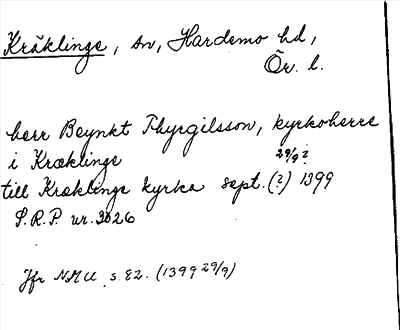 Kräklinge, sn, Hardemo hd,
Ör. l.
herr Beynkt Thyrgilsson, kyrkoherre
i Kræklinge 29/9 ?
till Kræklinge kyrka sept. (?) 1399
S.R.P. nr. 3026
Jfr NMU s. 82. (1399 29/9)